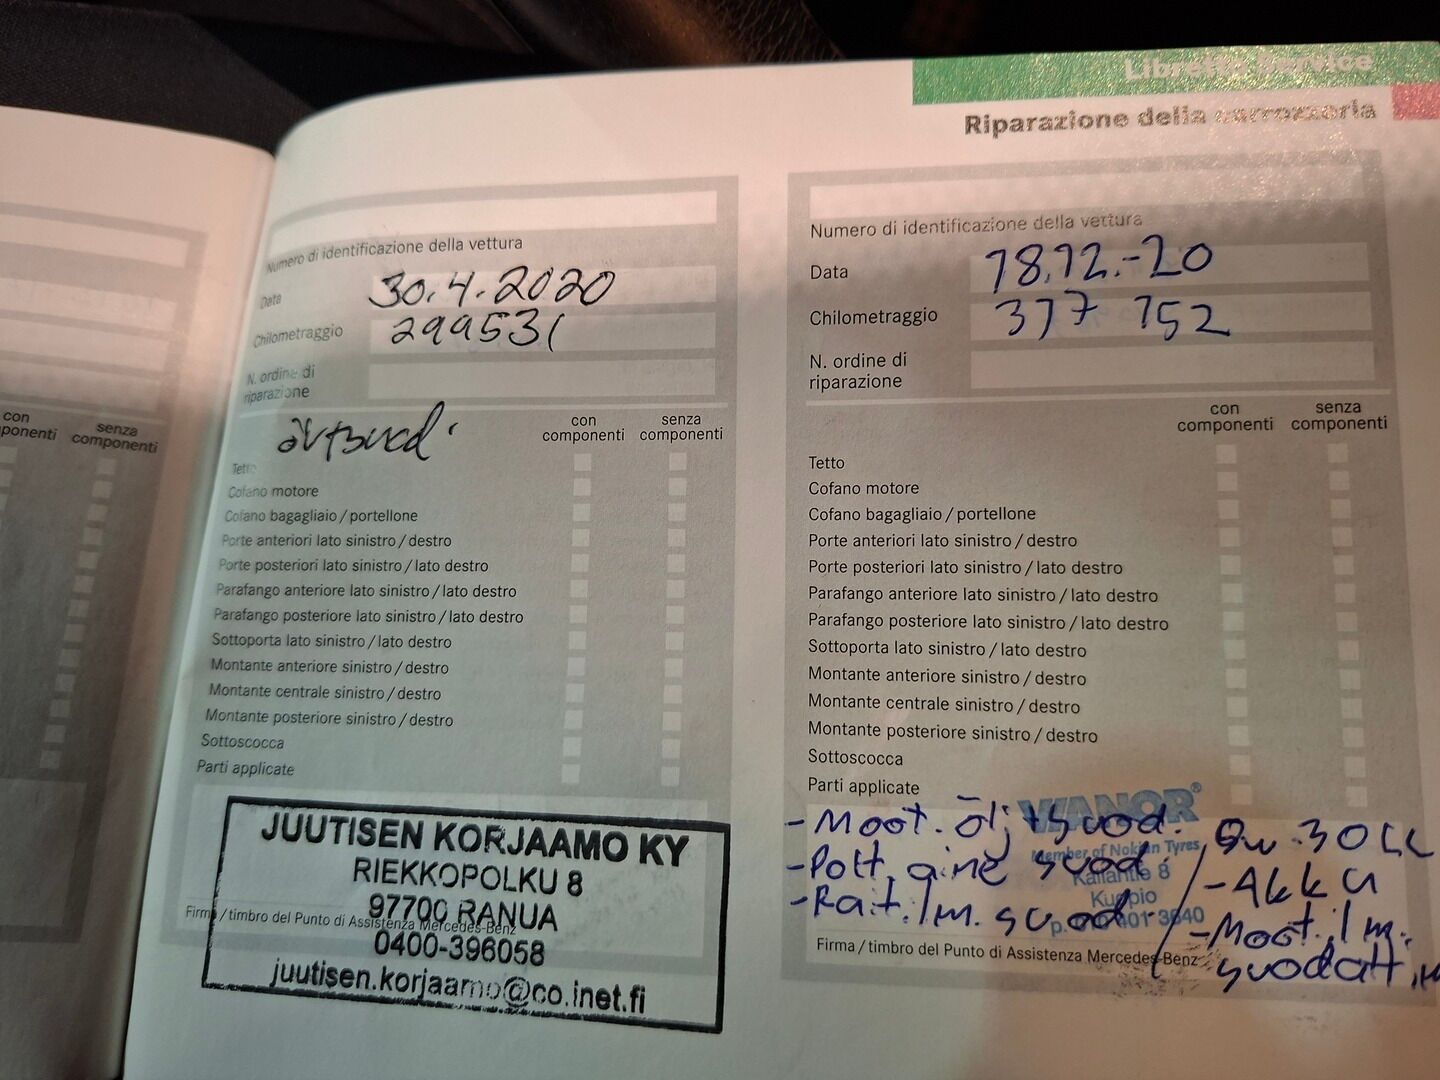 Libretto Service
Riparazione della carrozzeria
con
componenti
senza
componenti
Numero di identificazione della vettura
Data 30.4.2020
Chilometraggio 299531
N. ordine di
riparazione
con
componenti
senza
componenti
Tetto
Cofano motore
Cofano bagagliaio / portellone
Porte anteriori lato sinistro / destro
Porte posteriori lato sinistro / lato destro
Parafango anteriore lato sinistro / lato destro
Parafango posteriore lato sinistro / lato destro
Sottoporta lato sinistro / lato destro
Montante anteriore sinistro / destro
Montante centrale sinistro / destro
Montante posteriore sinistro / destro
Sottoscocca
Parti applicate
JUUTISEN KORJAAMO KY
RIEKKOPOLKU 8
97700 RANUA
Firma / timbro del Punto di Assistenza Mercedes-Benz
0400-396058
juutisen.korjaamo@co.inet.fi
Numero di identificazione della vettura
Data 18.12.-20
Chilometraggio 377 152
N. ordine di
riparazione
con
componenti
senza
componenti
Tetto
Cofano motore
Cofano bagagliaio / portellone
Porte anteriori lato sinistro / destro
Porte posteriori lato sinistro / lato destro
Parafango anteriore lato sinistro / lato destro
Parafango posteriore lato sinistro / lato destro
Sottoporta lato sinistro / lato destro
Montante anteriore sinistro / destro
Montante centrale sinistro / destro
Montante posteriore sinistro / destro
Sottoscocca
Parti applicate
VIANOR
Member of Nokian Tyres
Kallantie 8
Kuopio
- Moot. öljtsuod.
- Polt. aine suod.
- Rait. lm. suod.
5w.30LL
- Akku
- Moot. lm.
Firma / timbro del Punto di Assistenza Mercedes-Benz